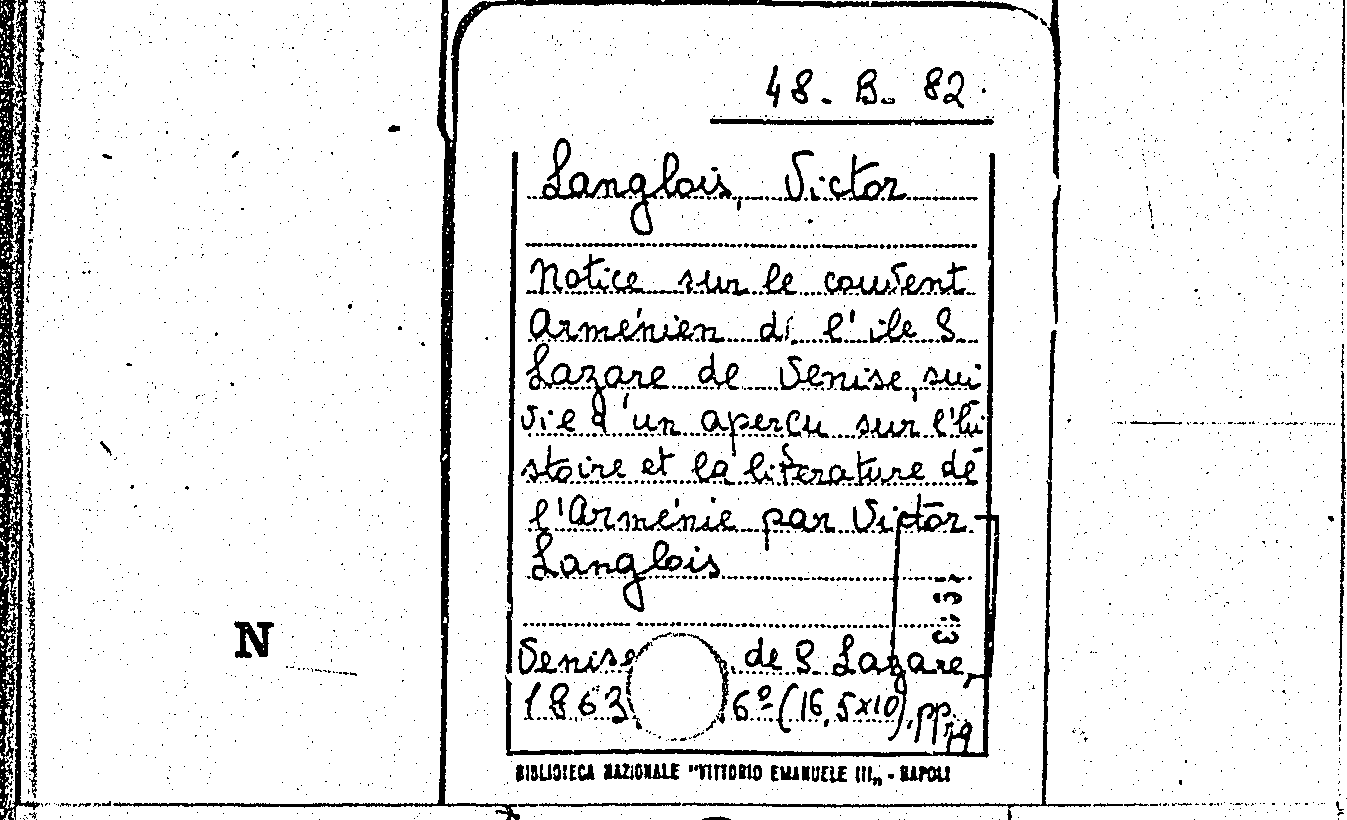 48. B. 82.
Langlois, Victor
Notice sur le couvent
Arménien di l'ile S.
Lazare de Venise, sui
vie d'un aperçu sur l'hi
stoire et la literature de
l'Arménie par Victor
Langlois
Venise de S. Lazare,
1863 6º (16,5x10), pp.
N
BIBLIOTECA NAZIONALE "VITTORIO EMANUELE III„ - NAPOLI